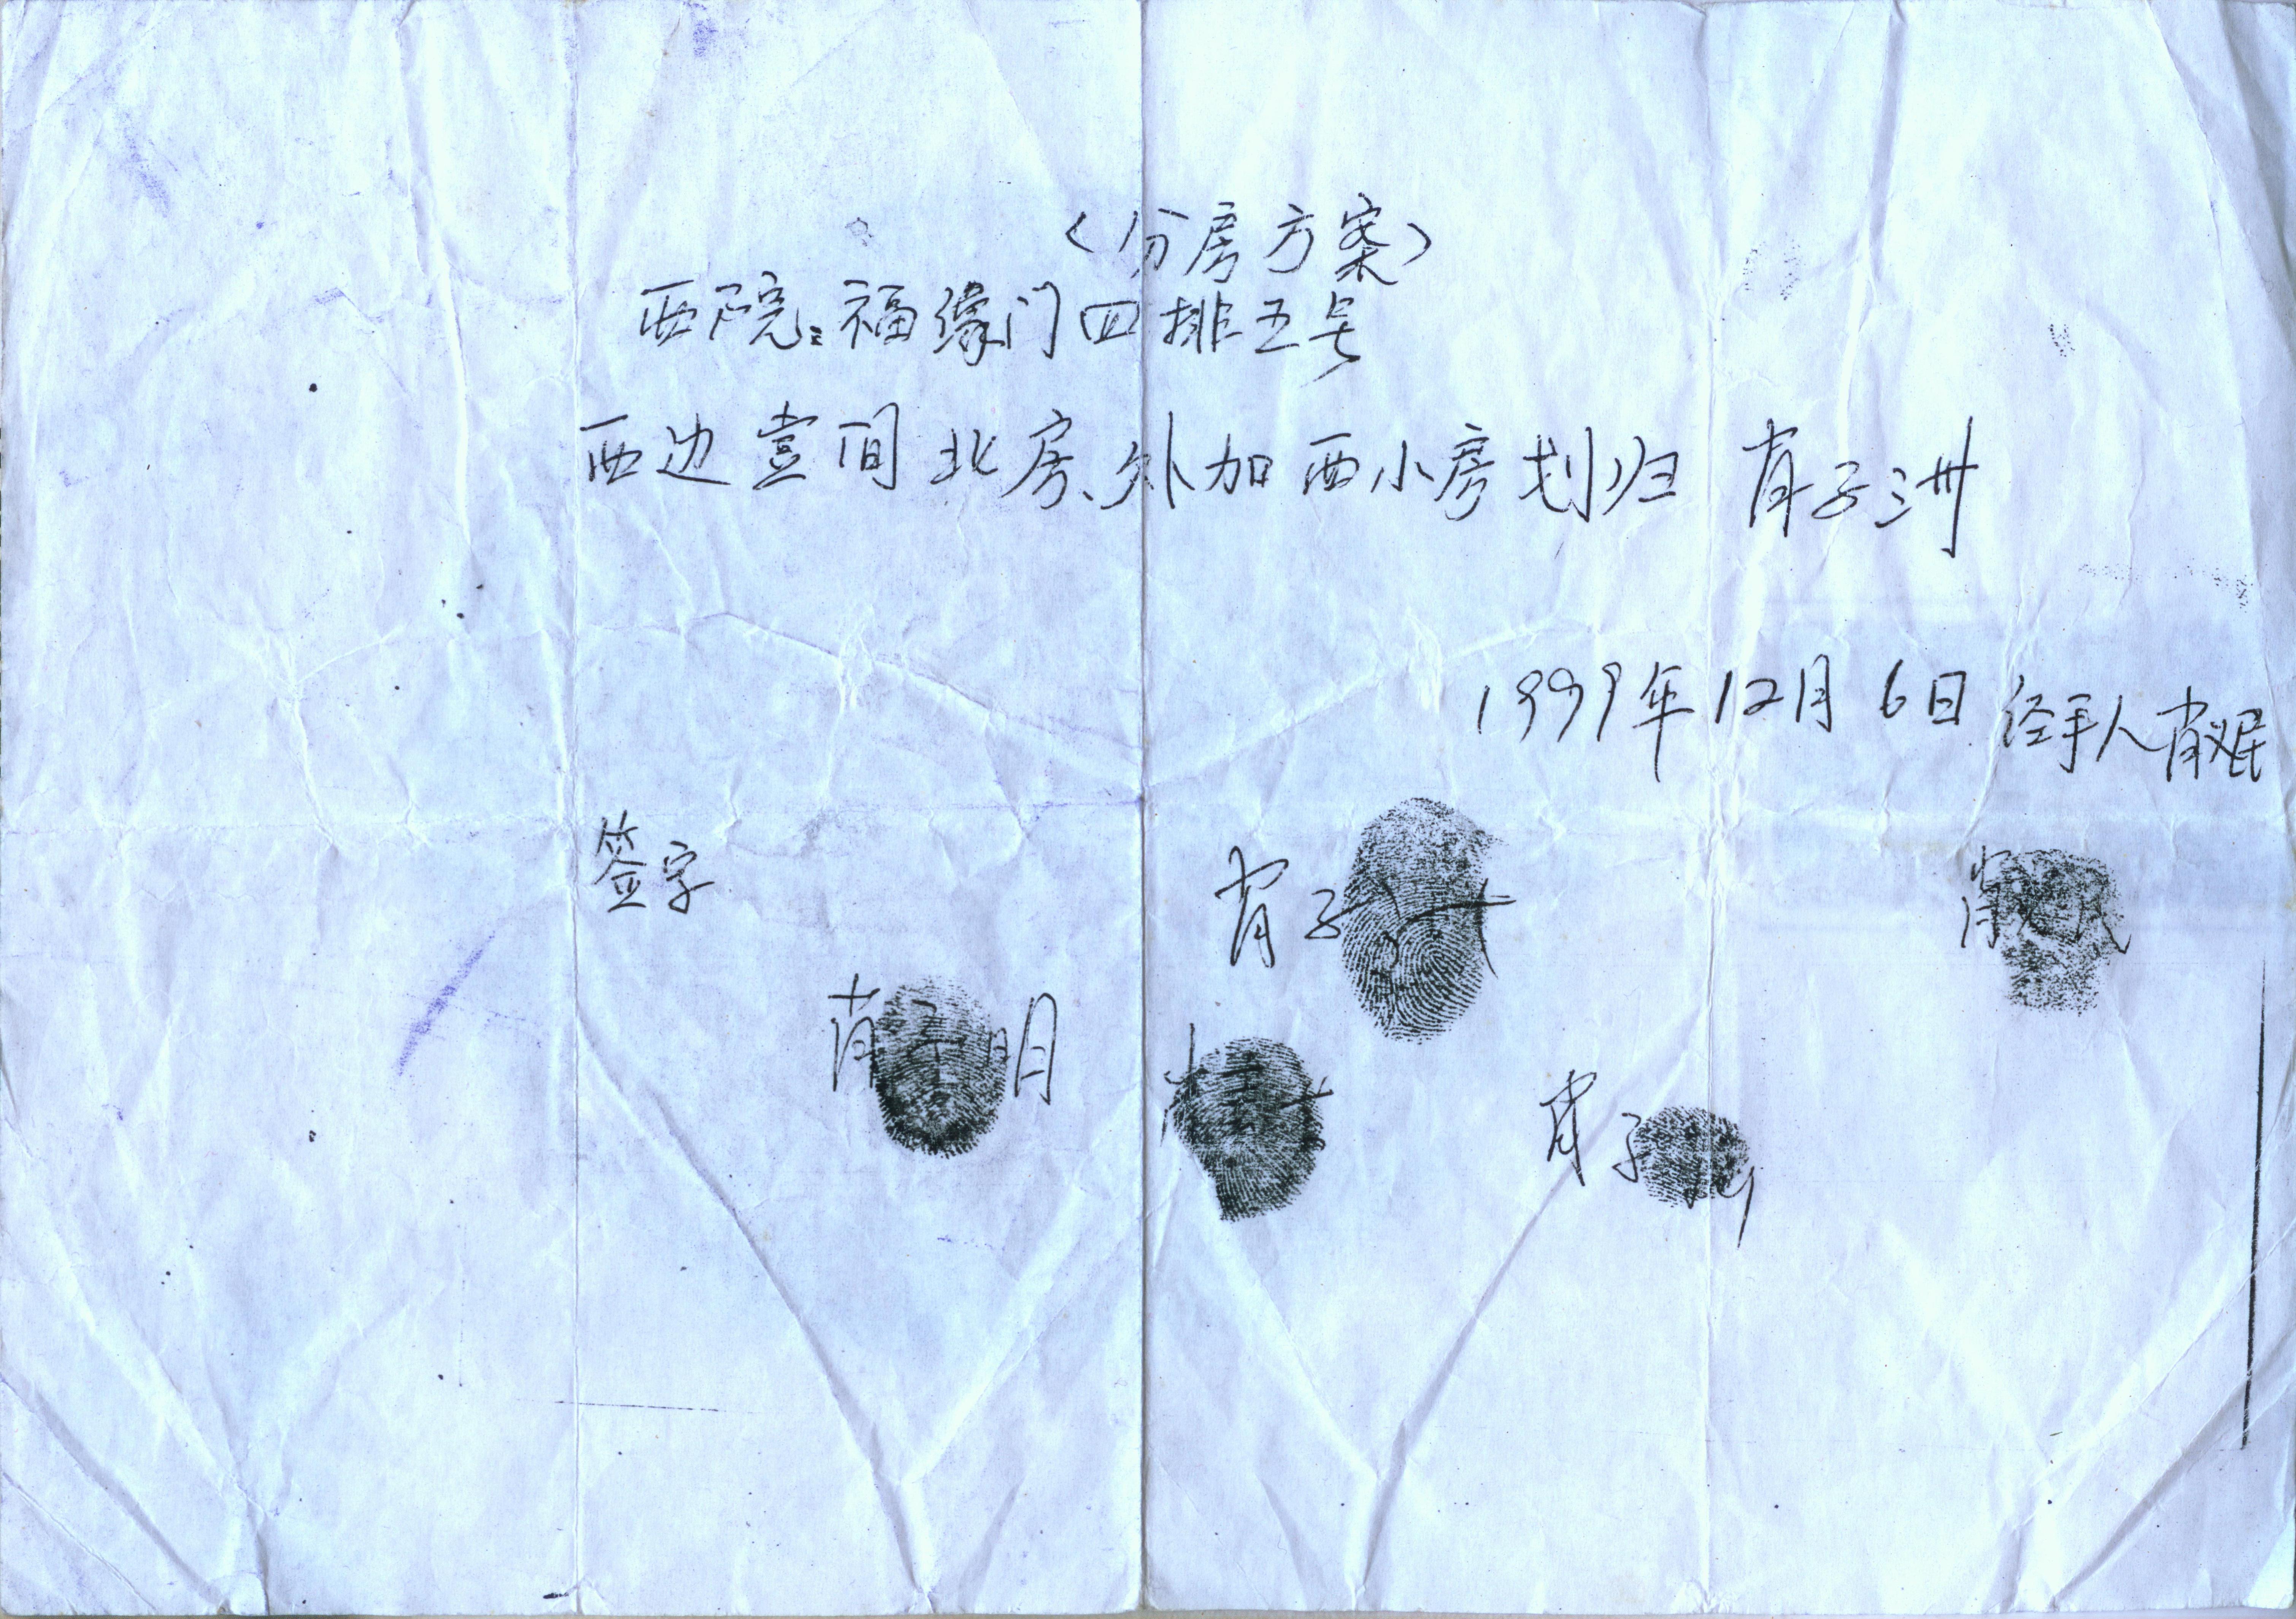 〈分房方案〉
西院:福缘门四排五号
西边壹间北房、外加西小房划归 肖子洲
1999年12月6日 经手人肖义民
签字
肖子
肖 明
肖子